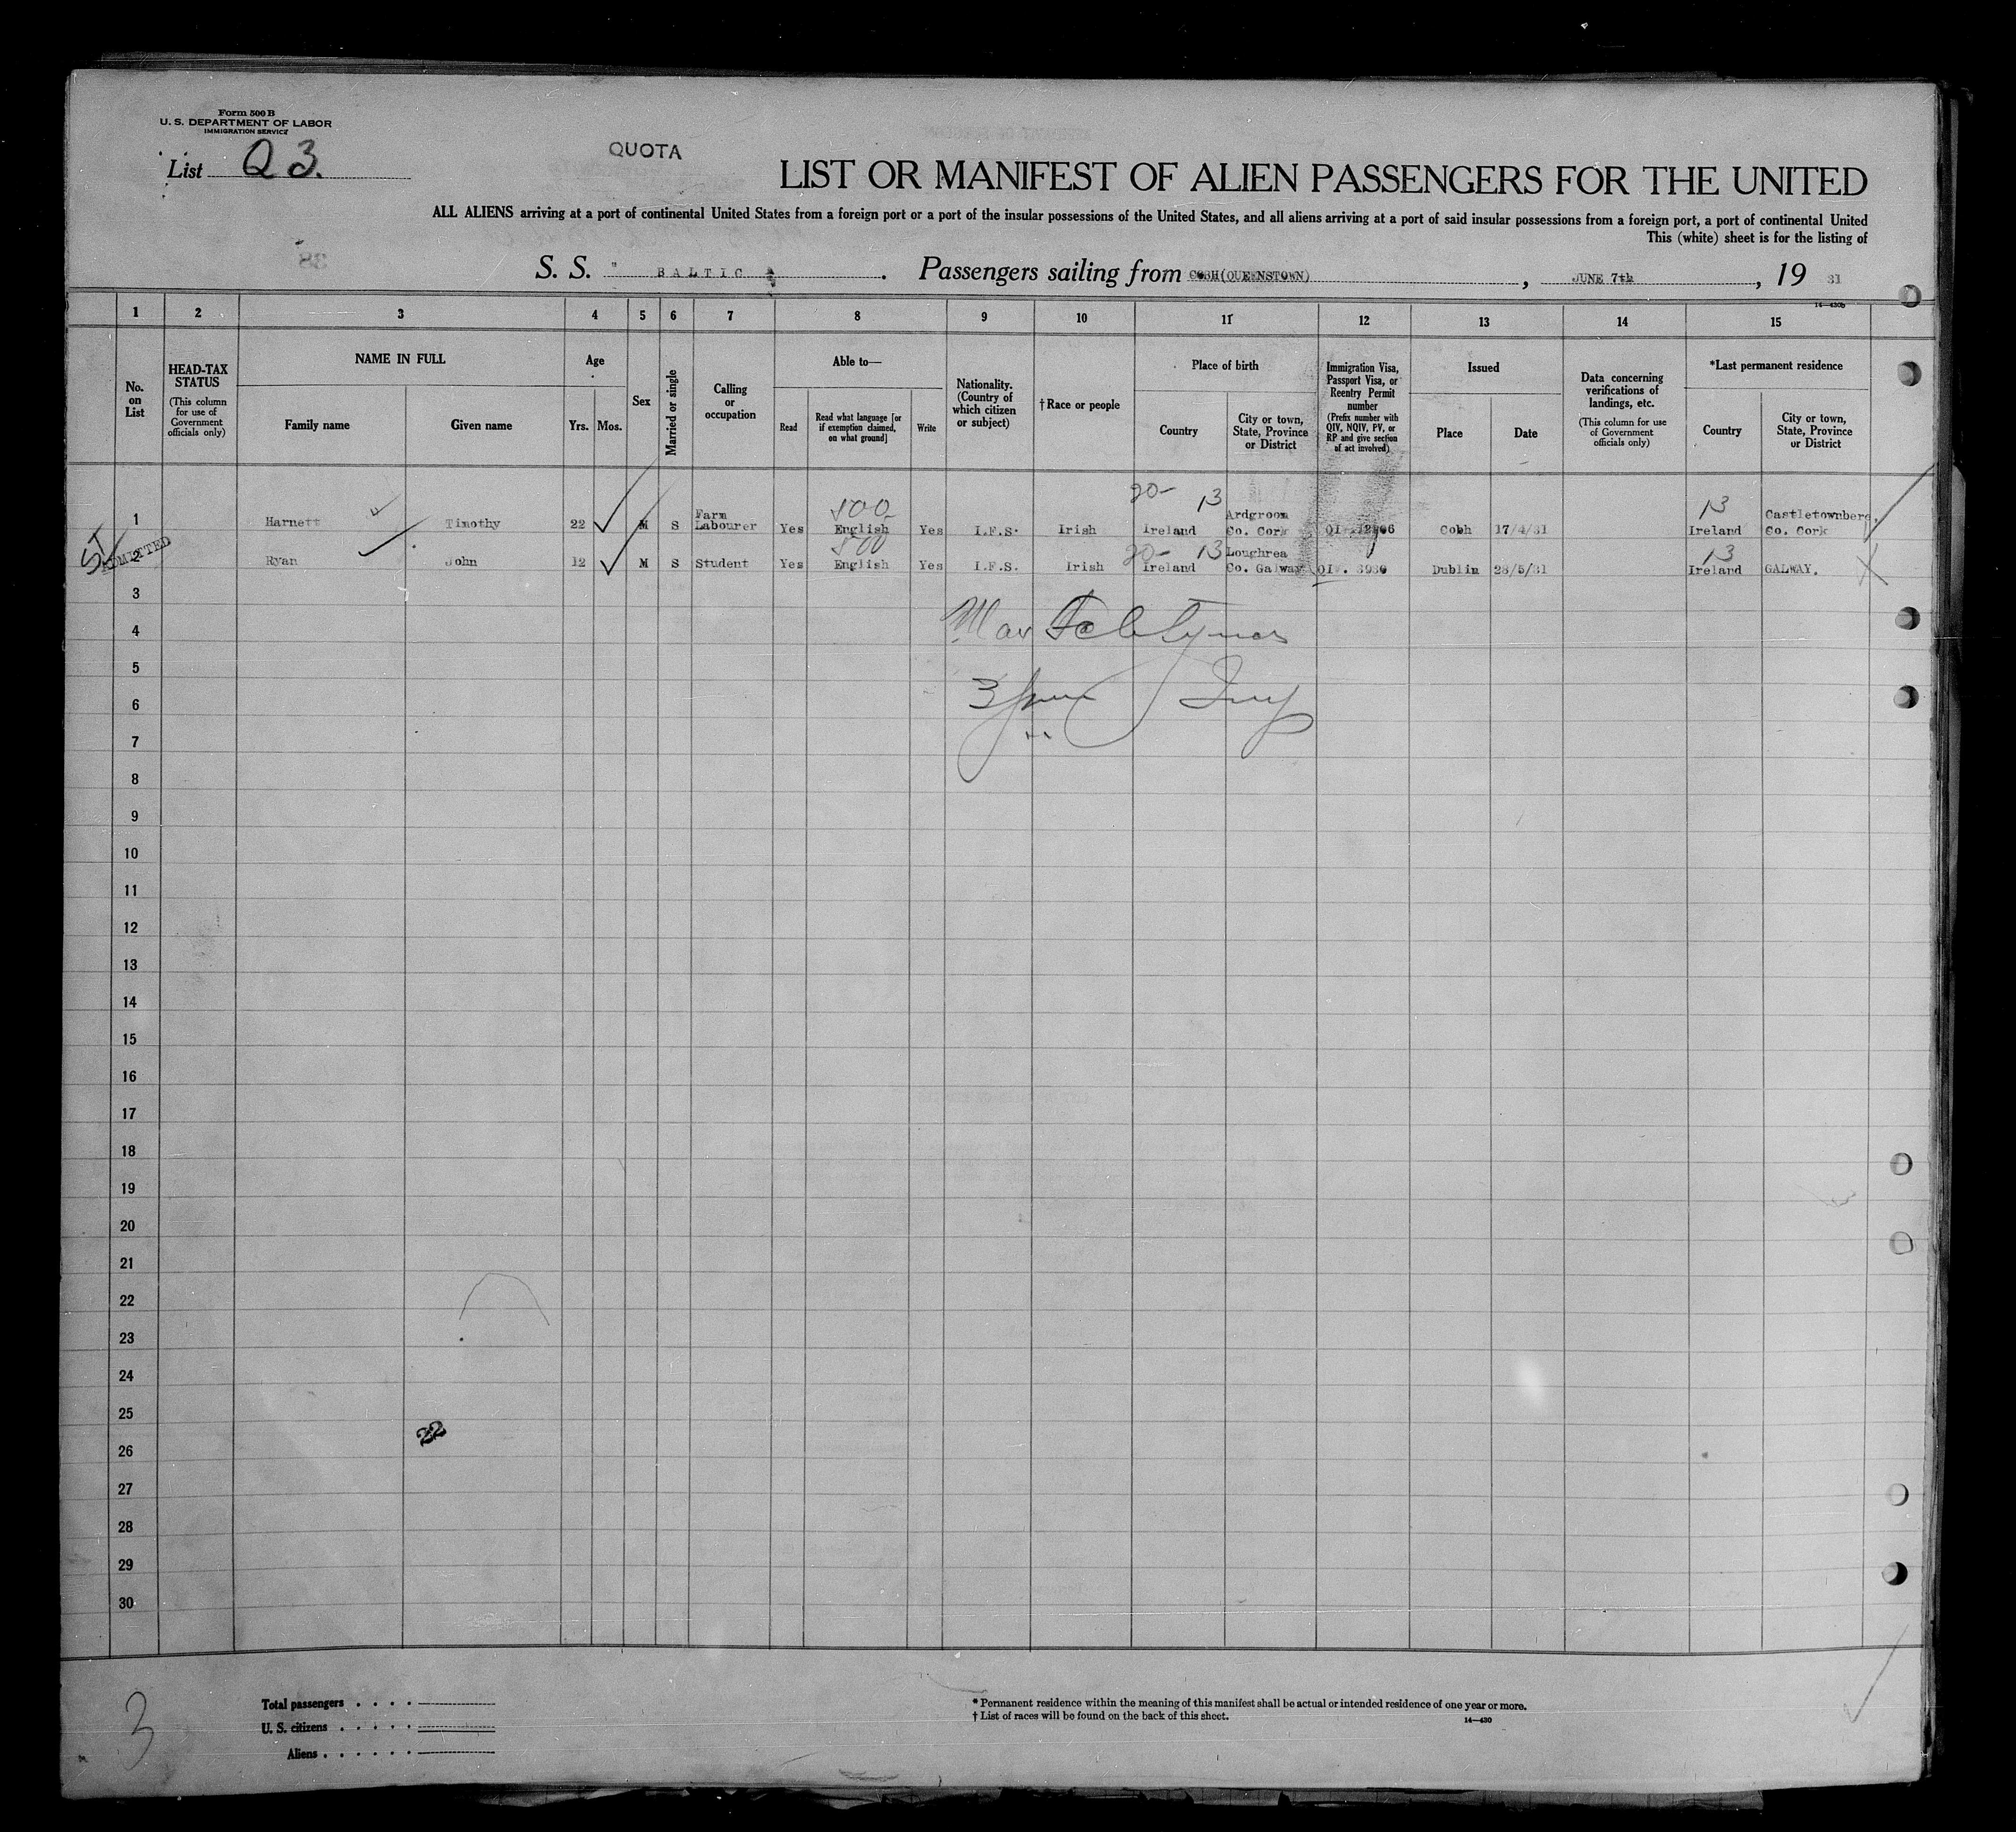 Form 500 B
U. S. DEPARTMENT OF LABOR
IMMIGRATION SERVICE
List Q 3.
QUOTA
LIST OR MANIFEST OF ALIEN PASSENGERS FOR THE UNITED
ALL ALIENS arriving at a port of continental United States from a foreign port or a port of the insular possessions of the United States, and all aliens arriving at a port of said insular possessions from a foreign port, a port of continental United
This (white) sheet is for the listing of
38
S. S. " BALTIC ". Passengers sailing from COBH(QUEENSTOWN), JUNE 7th, 19 31
14—430b
1 2 3 4 5 6 7 8 9 10 11 12 13 14 15
No. on List
HEAD-TAX STATUS
(This column for use of Government officials only)
NAME IN FULL
Family name
Given name
Age
Yrs. Mos.
Sex
Married or single
Calling or occupation
Able to—
Read
Read what language [or if exemption claimed, on what ground]
Write
Nationality. (Country of which citizen or subject)
† Race or people
Place of birth
Country
City or town, State, Province or District
Immigration Visa, Passport Visa, or Reentry Permit number
(Prefix number with QIV, NQIV, PV, or RP and give section of act involved)
Issued
Place
Date
Data concerning verifications of landings, etc.
(This column for use of Government officials only)
*Last permanent residence
Country
City or town, State, Province or District
500 20— 13 13
1 Harnett Timothy 22 M S Farm Labourer Yes English Yes I.F.S. Irish Ireland Ardgroom Co. Cork Cobh 17/4/31 Ireland Castletownbere, Co. Cork
ST ADMITTED
500 20— 13 13
2 Ryan John 12 M S Student Yes English Yes I.F.S. Irish Ireland Loughrea Co. Galway Dublin 28/5/31 Ireland GALWAY.
3
4
5
6
7
8
9
10
11
12
13
14
15
16
17
18
19
20
21
22
23
24
25
26
27
28
29
30
22
3
Total passengers . . . .
U. S. citizens . . . . .
Aliens . . . . . .
* Permanent residence within the meaning of this manifest shall be actual or intended residence of one year or more.
† List of races will be found on the back of this sheet.
14—430